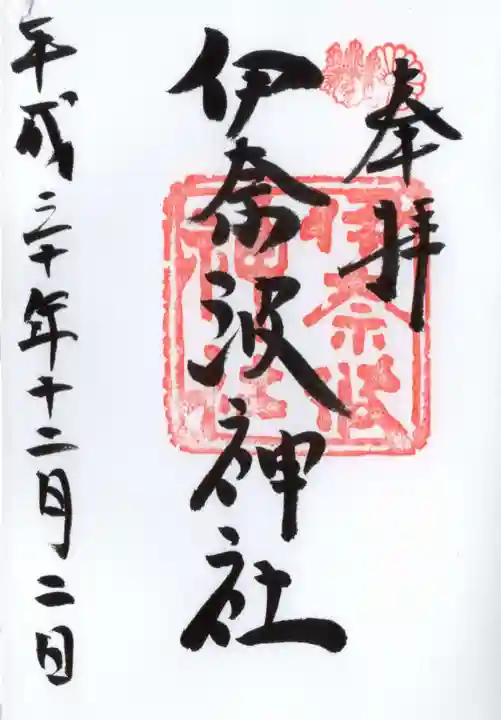 奉拝
伊奈波神社
伊奈波
神社
平成三十年十二月二日